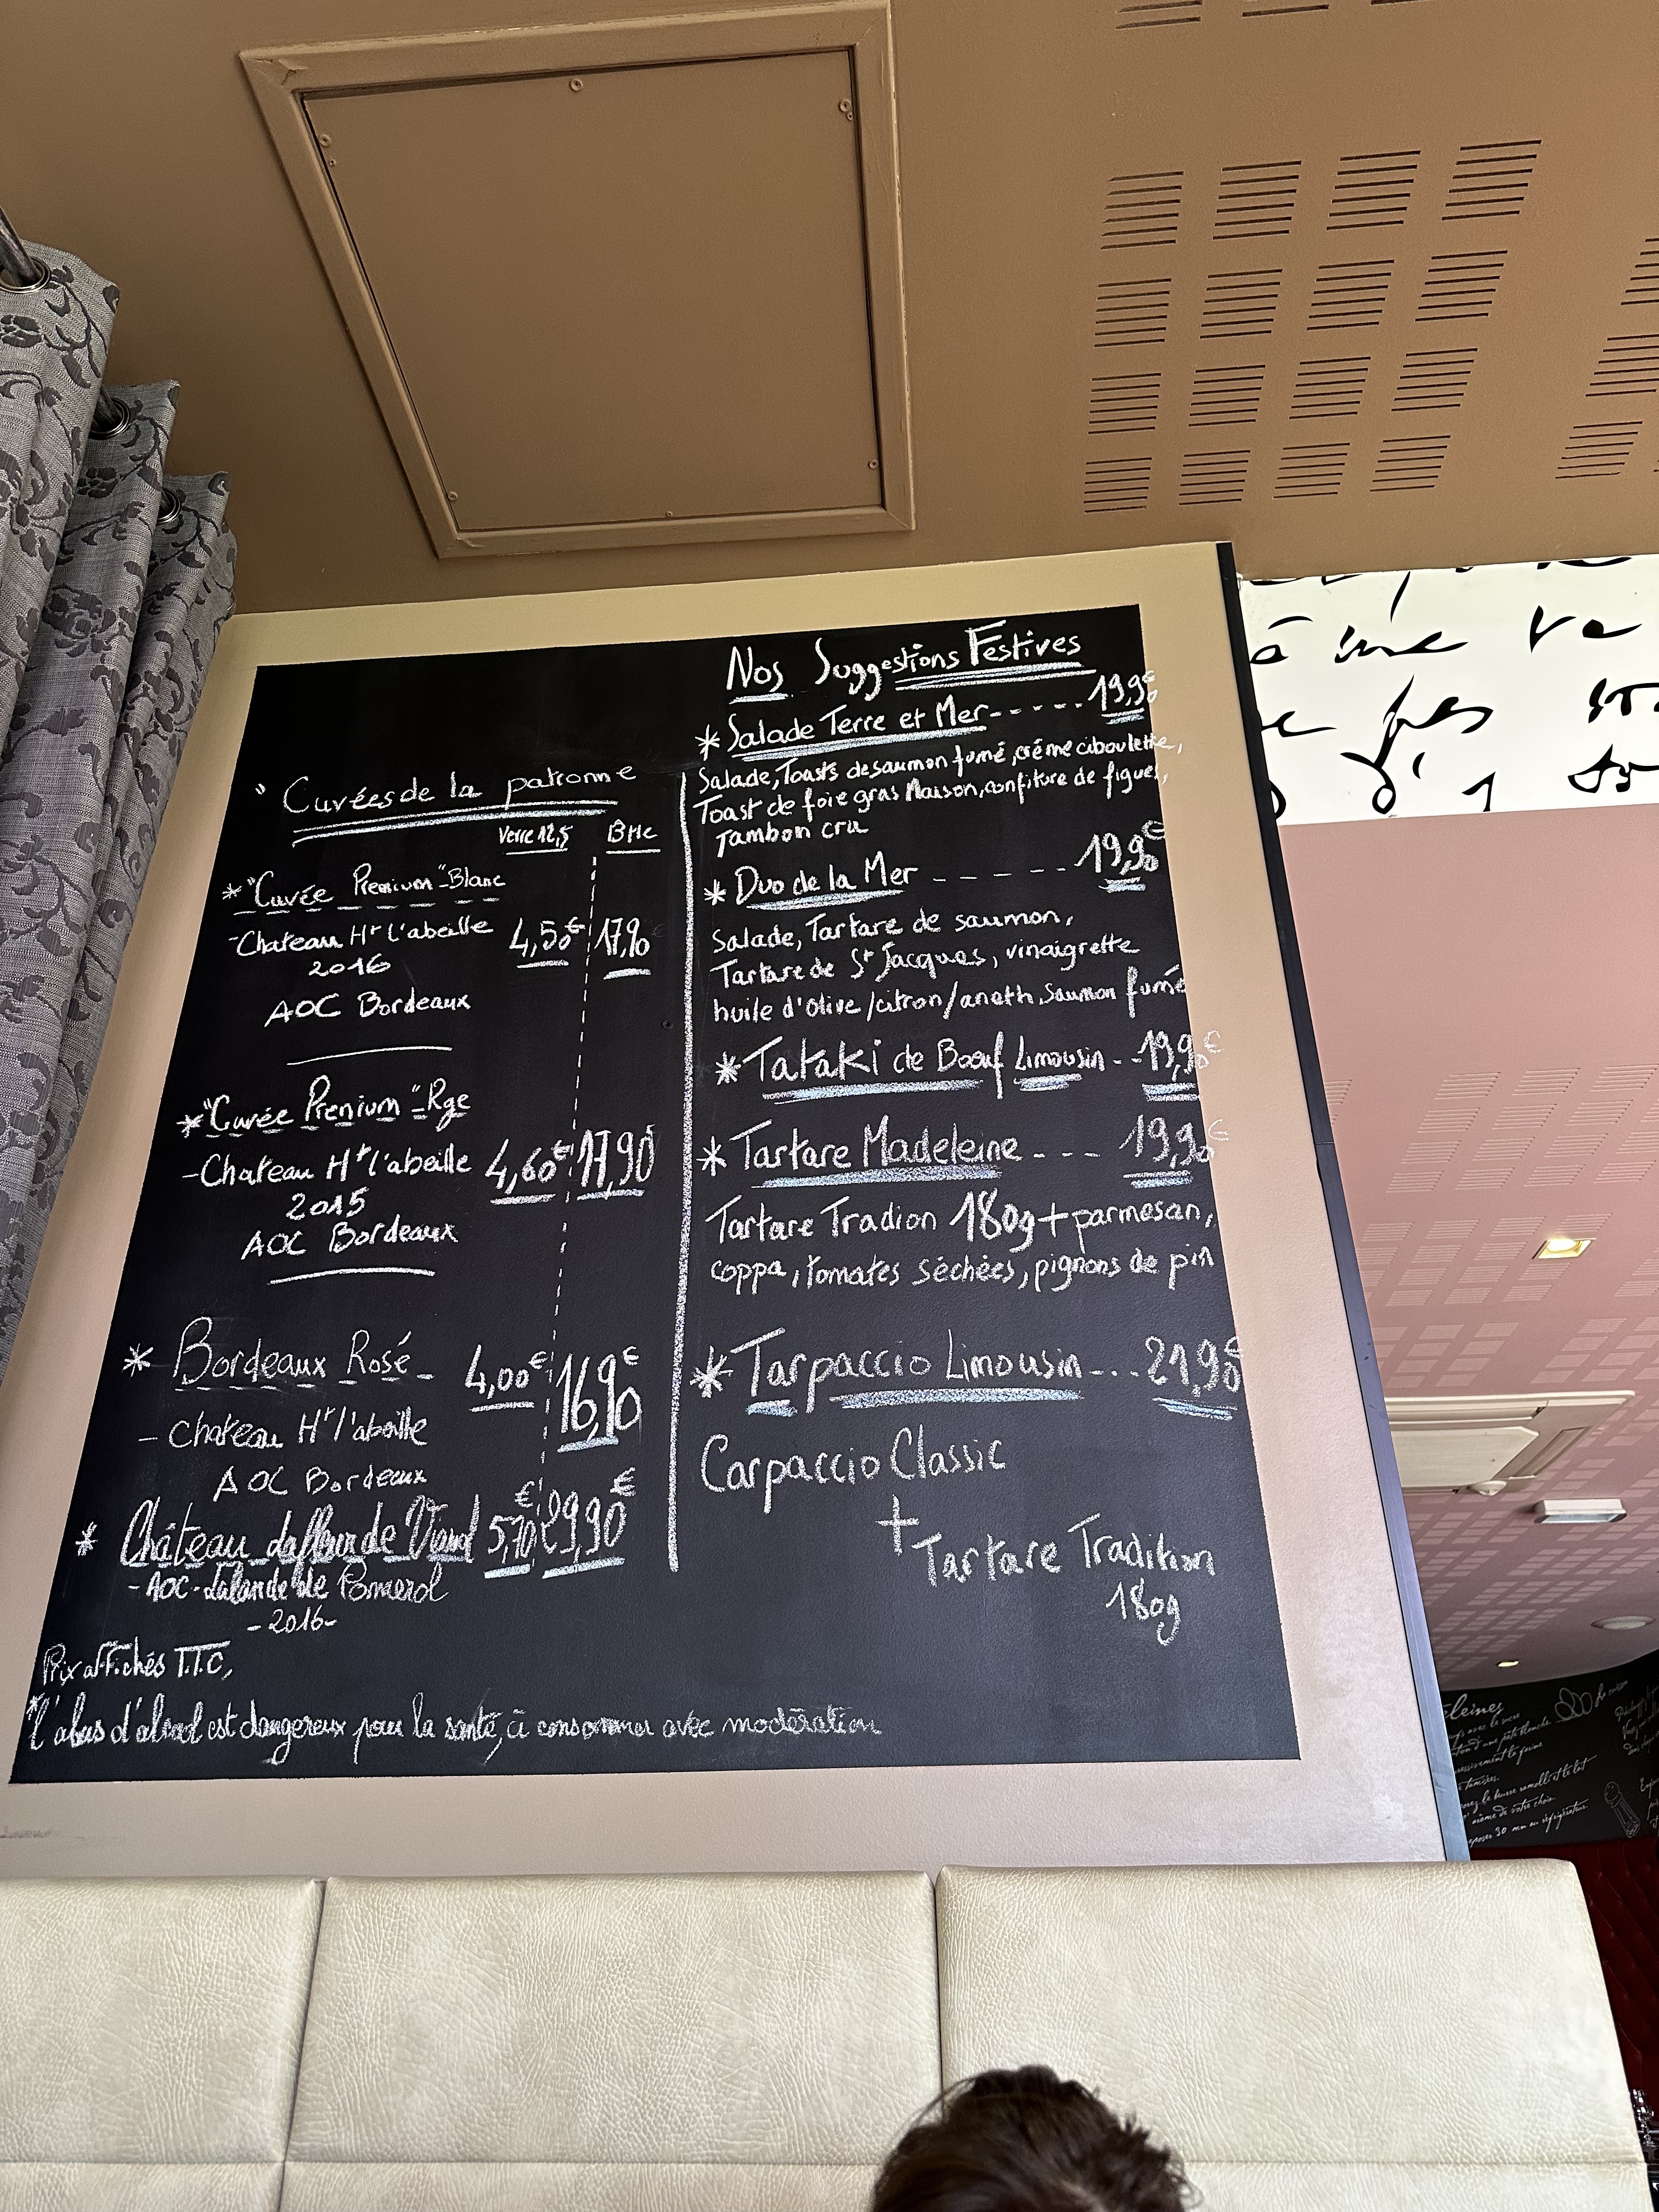 Cuvées de la patronne
Verre 12,5 Btlle
* "Cuvée Premium" - Blanc
- Chateau Ht l'abeille 4,50€ 17,90
2016
AOC Bordeaux
* "Cuvée Prenium" - Rge
- Chateau Ht l'abeille 4,60€ 17,90
2015
AOC Bordeaux
* Bordeaux Rosé - 4,00€ 16,90€
- Chateau Ht l'abeille
AOC Bordeaux
* Château Lafleur de Viaud 5,70€ 29,90€
- AOC - Lalande de Pomerol
- 2016 -
Prix affichés T.T.C,
*L'abus d'alcool est dangereux pour la santé, à consommer avec modération
Nos Suggestions Festives
* Salade Terre et Mer - - - - - 19,90€
Salade, Toasts de saumon fumé, crème ciboulette,
Toast de foie gras Maison, confiture de figues,
Jambon cru
* Duo de la Mer - - - - - 19,90€
Salade, Tartare de saumon,
Tartare de St Jacques, vinaigrette
huile d'olive/citron/aneth, saumon fumé
* Tataki de Bœuf Limousin - - 19,90€
* Tartare Madeleine - - - 19,90€
Tartare Tradion 180g + parmesan,
coppa, tomates séchées, pignons de pin
* Tarpaccio Limousin - - - 21,90€
Carpaccio Classic
+
Tartare Tradition
180g
à me
pas
leines